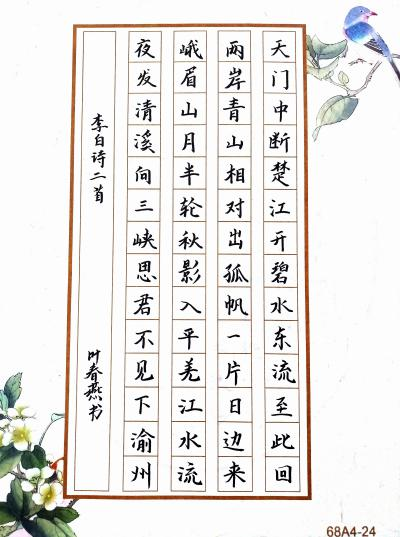 天门中断楚江开碧水东流至此回
两岸青山相对出孤帆一片日边来
峨眉山月半轮秋影入平羌江水流
夜发清溪向三峡思君不见下渝州
李白诗二首
叶春燕书
68A4-24